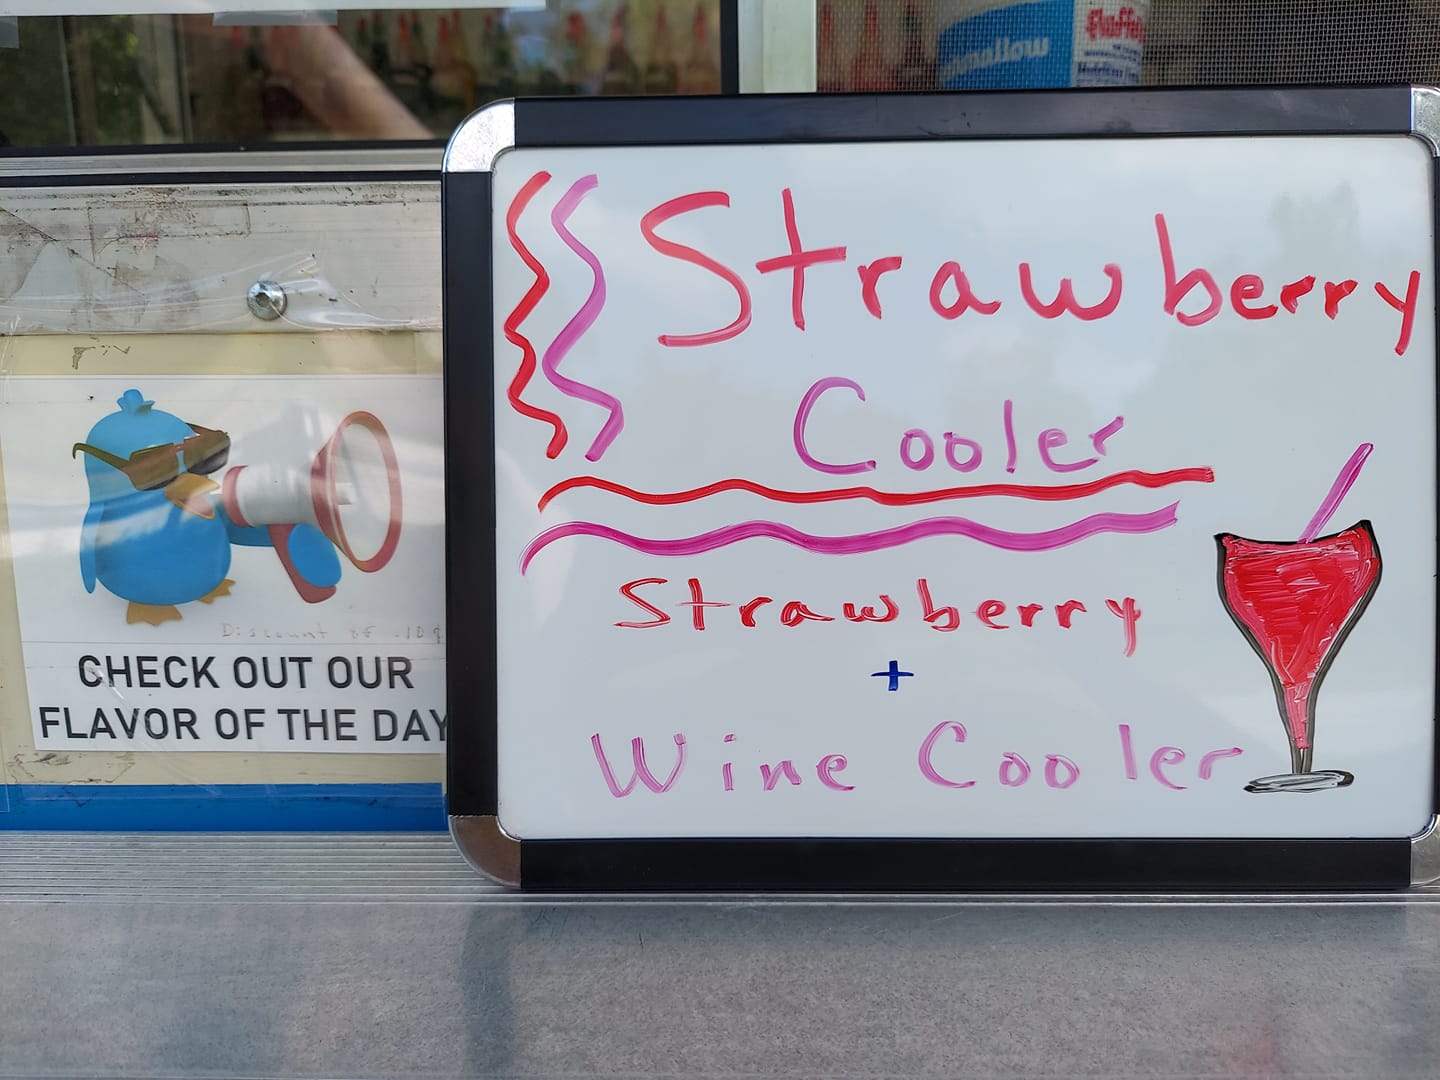 Fluffe
Strawberry
Cooler
Strawberry
+
Wine Cooler
Discount of .10¢
CHECK OUT OUR
FLAVOR OF THE DAY